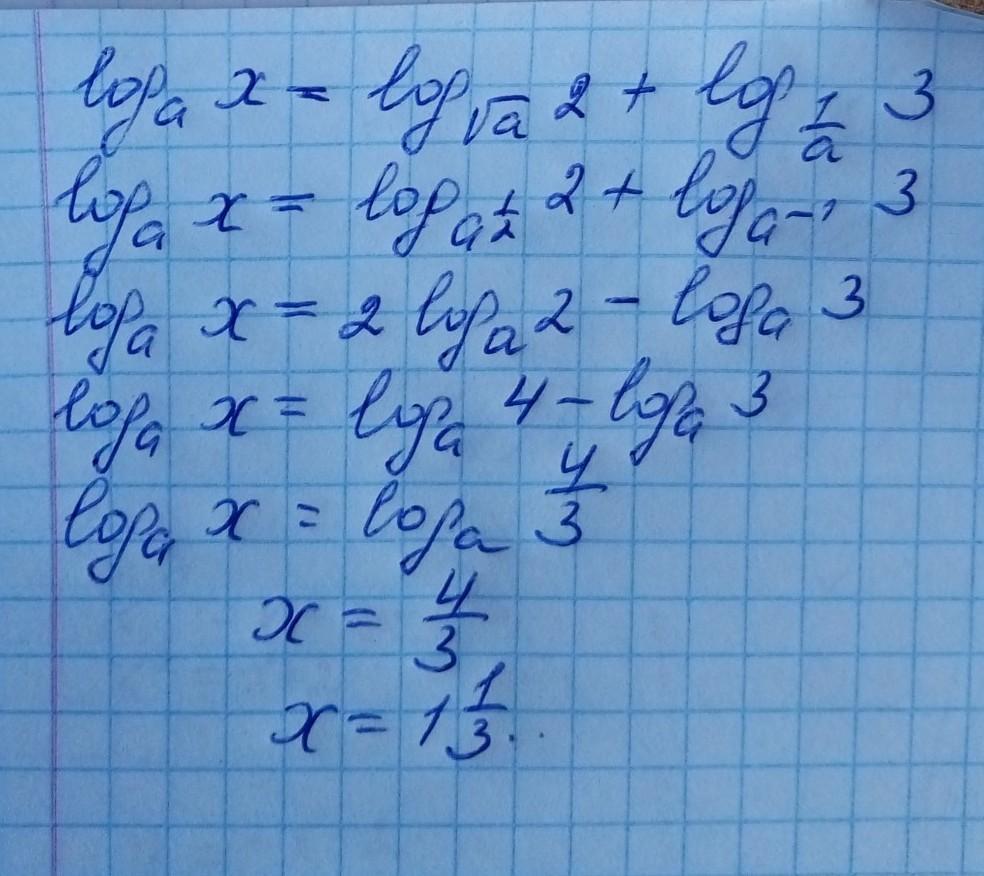 logₐ x = log_√a 2 + log_1/a 3
logₐ x = log_a^1/2 2 + log_a^-1 3
logₐ x = 2 logₐ 2 - logₐ 3
logₐ x = logₐ 4 - logₐ 3
logₐ x = logₐ 4/3
x = 4/3
x = 1 1/3.